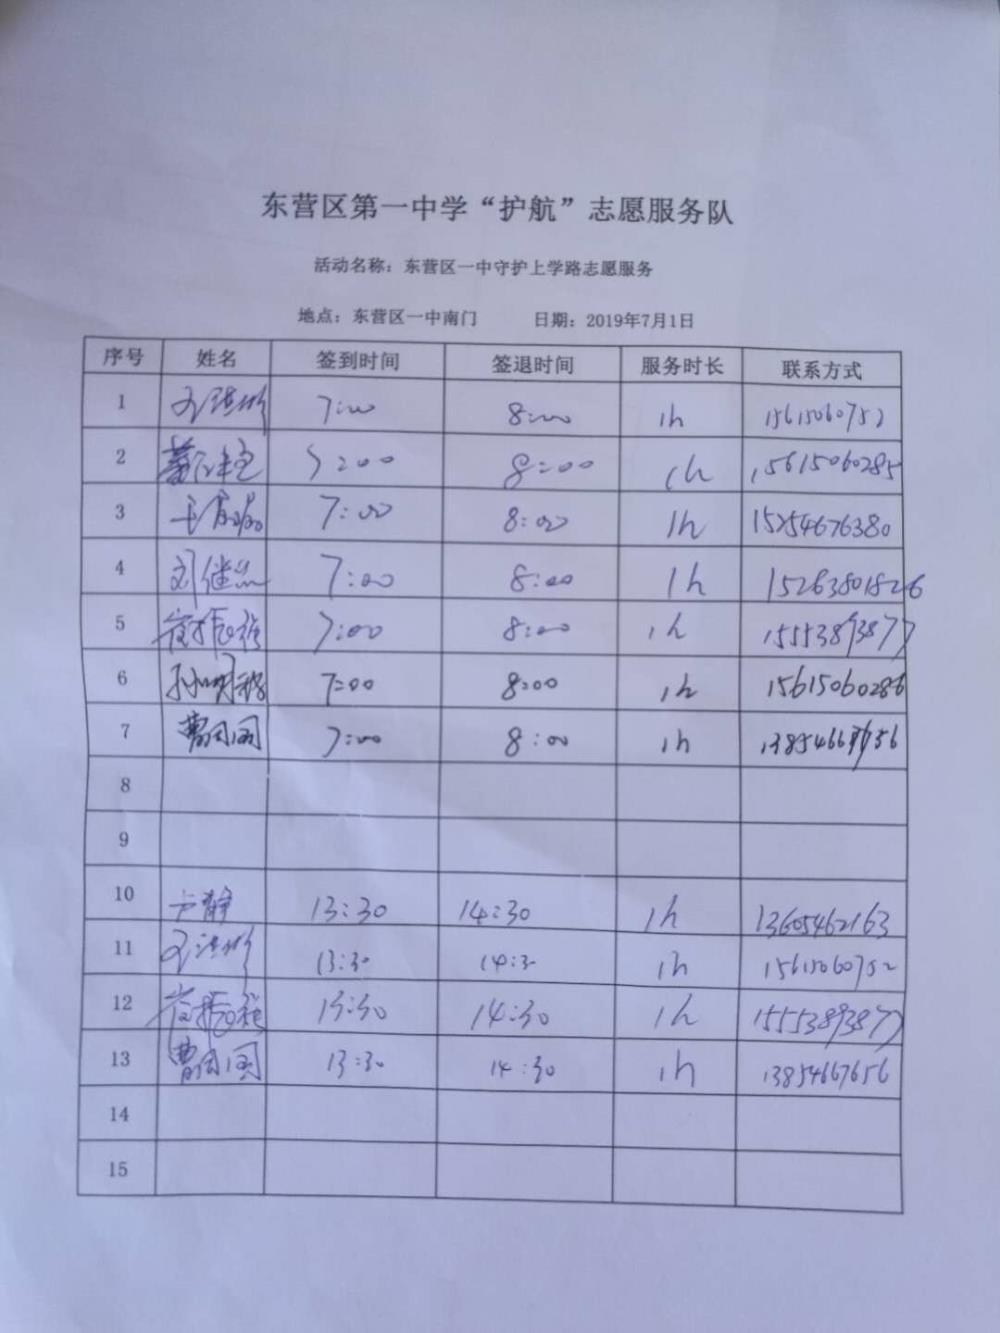 东营区第一中学“护航”志愿服务队
活动名称：东营区一中守护上学路志愿服务
地点：东营区一中南门 日期：2019年7月1日
序号 姓名 签到时间 签退时间 服务时长 联系方式
1 7:00 8:00 1h 15615060752
2 7:00 8:00 1h 15615060285
3 7:00 8:00 1h 15254676380
4 刘继 7:00 8:00 1h 15263801826
5 崔振 7:00 8:00 1h 15553893877
6 孙明 7:00 8:00 1h 15615060286
7 曹 7:00 8:00 1h
8
9
10 卢静 13:30 14:30 1h 13605462163
11 13:30 14:3 1h 15615060752
12 崔振 13:30 14:30 1h 15553893877
13 曹 13:30 14:30 1h 13854667656
14
15